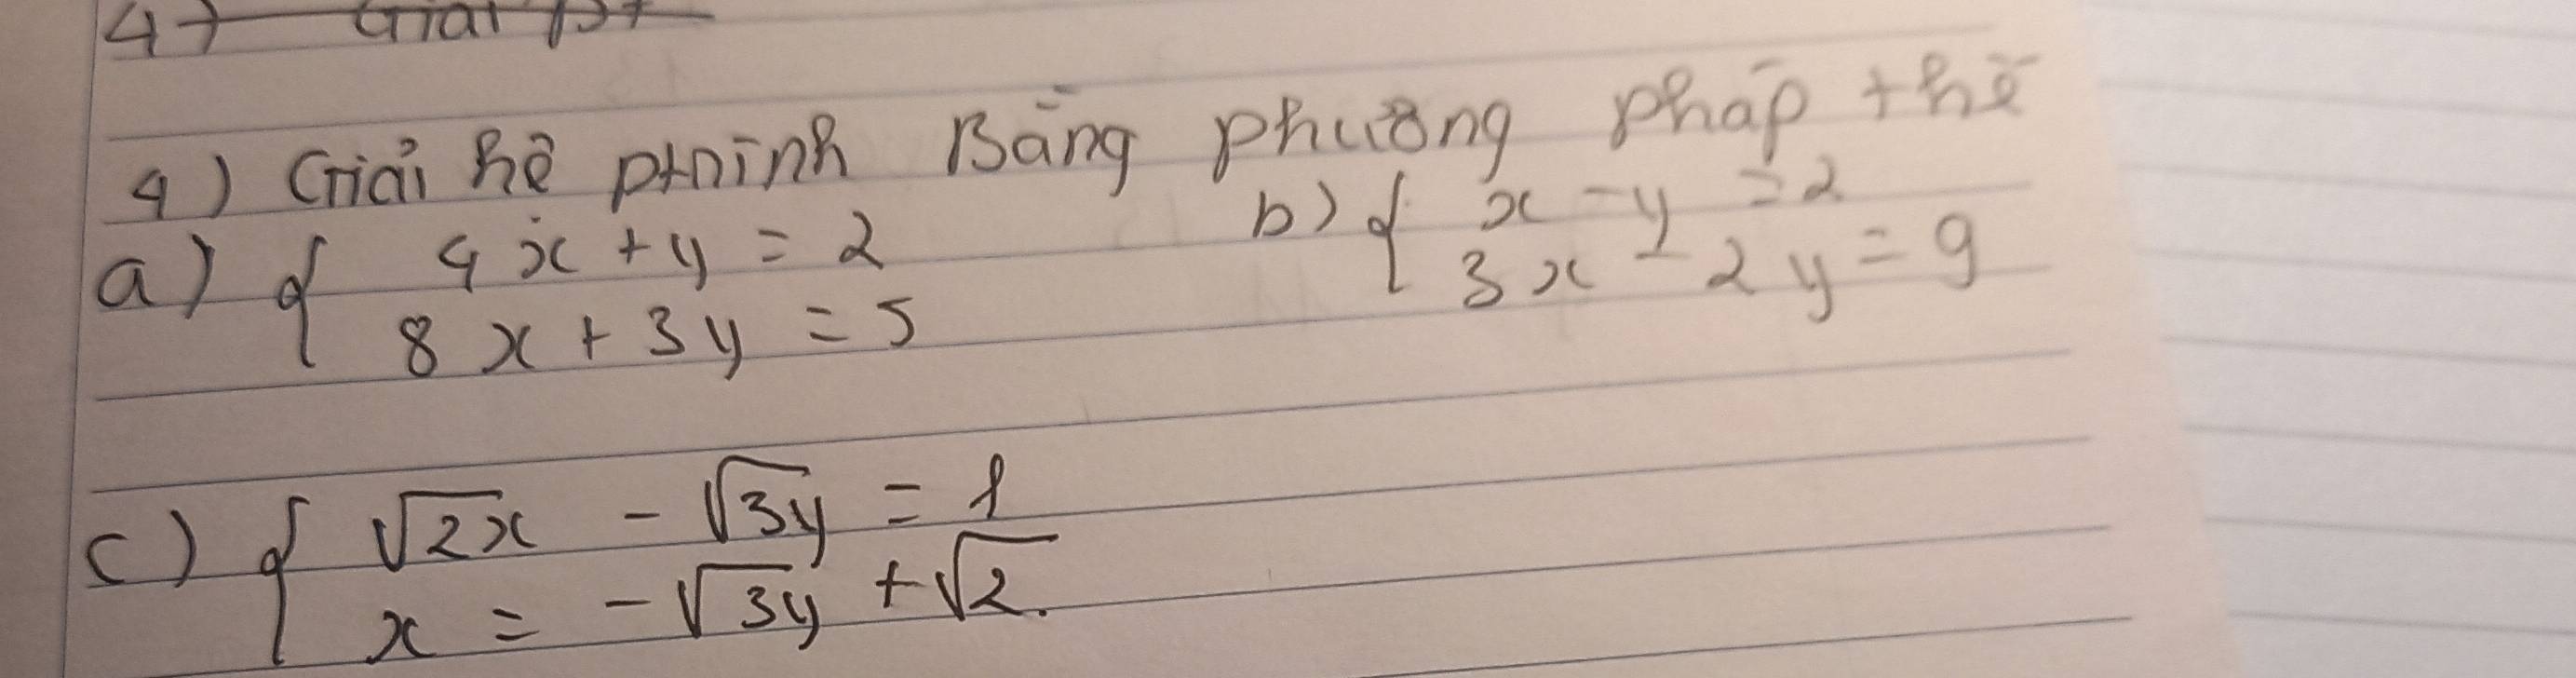 4) Giải pt
4) Giải hệ ptrình Bằng phương pháp thế
a) { 4x + y = 2
8x + 3y = 5
b) { x - y = 2
3x - 2y = 9
c) { √2x - √3y = 1
x = -√3y + √2.